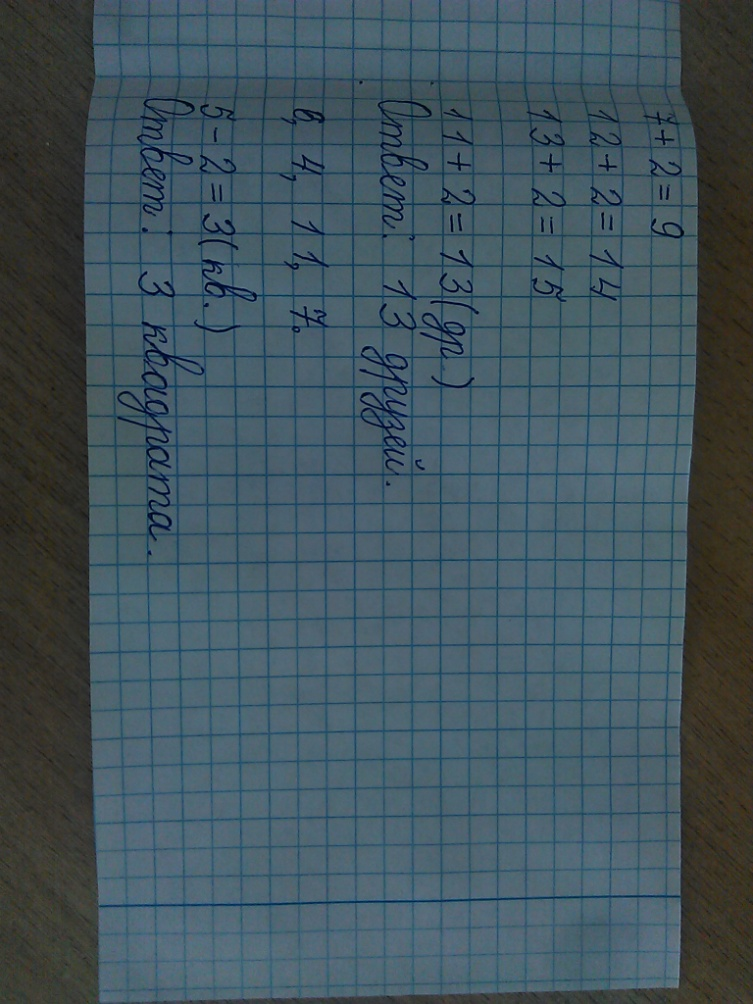 7 + 2 = 9
12 + 2 = 14
13 + 2 = 15
11 + 2 = 13 (др.)
Ответ: 13 друзей.
8, 4, 11, 7.
5 - 2 = 3 (кв.)
Ответ: 3 квадрата.